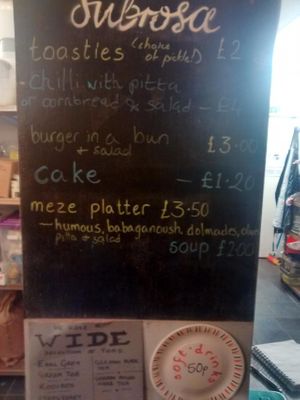 Subrosa
toasties (choice of pickle!) £2
- chilli with pitta
or cornbread & salad - £4
burger in a bun £3.00
+ salad
cake - £1.20
meze platter £3.50
- humous, babaganoush, dolmades, olives
pitta & salad
soup £2.00
WE HAVE A
WIDE
SELECTION OF TEAS
EARL GREY
GREEN TEA
ROOIBOS
soft drinks
50p